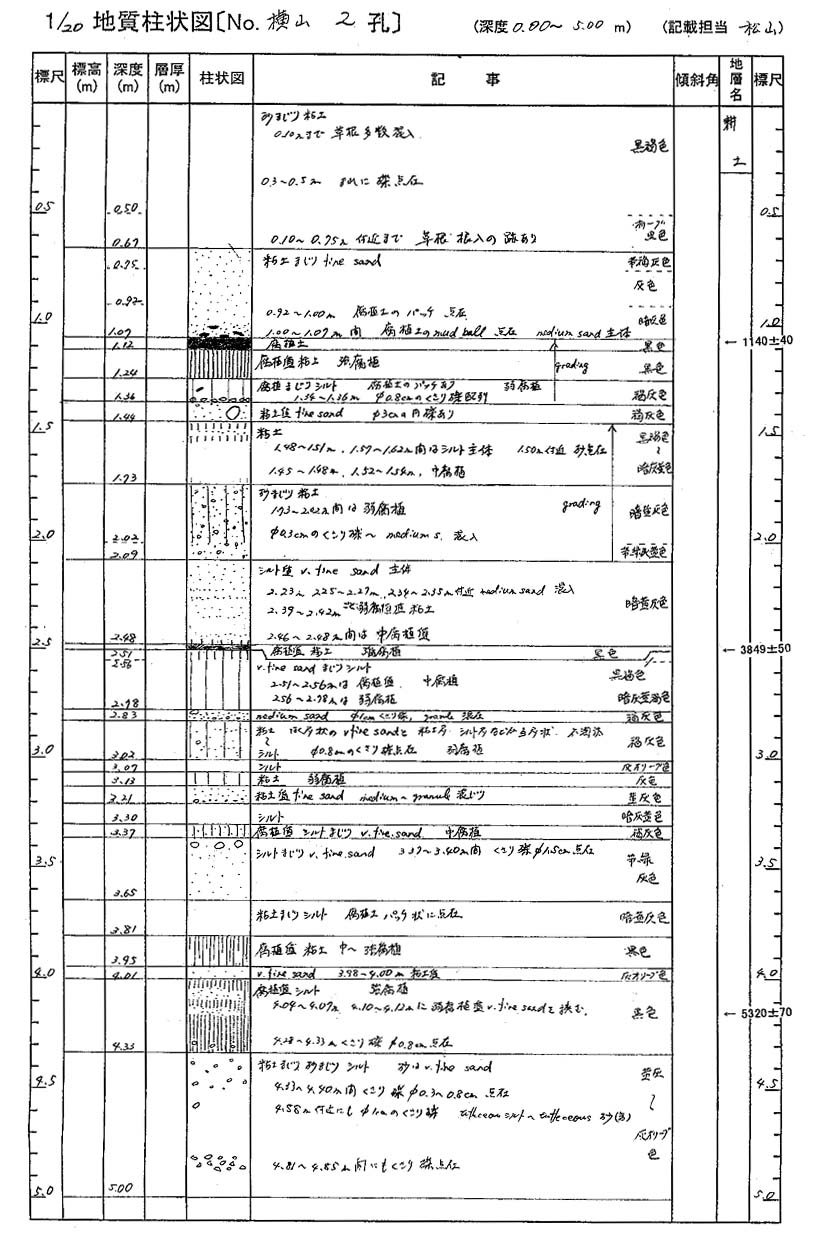 1/20 地質柱状図〔No. 横山 2 孔〕 (深度 0.00～ 5.00 m) (記載担当 松山)
標尺 標高(m) 深度(m) 層厚(m) 柱状図 記事 傾斜角 地層名 標尺
砂まじり粘土
0.10mまで 草根多数混入
黒褐色
耕土
0.3～0.5m まれに礫点在
0.5 0.50 0.5
オリーブ黒色
0.67 0.10～0.75m 付近まで 草根 根入の跡あり
粘土まじり fine sand 帯褐灰色
0.75
灰色
0.92
0.92～1.00m 腐植土のパッチ 点在
1.0 暗灰色 1.0
1.07 1.00～1.07m 間 腐植土のmud ball 点在 medium sand 主体
1.12 腐植土 黒色 ← 1140±40
1.24 腐植質粘土 強腐植 grading 黒色
腐植まじりシルト 腐植土のパッチあり 弱腐植
1.36 1.34～1.36m φ0.8cmのくさり礫配列 褐灰色
1.44 粘土質 fine sand φ3cmの円礫あり 褐灰色
1.5 粘土 黒褐色 1.5
1.48～1.51m, 1.57～1.62m間はシルト主体 1.50m付近 砂点在
～
1.45～1.48m, 1.52～1.54m, 中腐植 暗灰黄色
1.73
砂まじり粘土
1.73～2.02m間は弱腐植 grading 暗黄灰色
2.0 2.02 φ0.3cmのくさり礫～ medium s. 混入 2.0
2.09
シルト質 v.fine sand 主体
2.23m 2.25～2.27m, 2.34～2.35m付近 medium sand 混入
2.39～2.42m 弱腐植質粘土 暗黄灰色
2.48 2.46～2.48m間は 中腐植質
2.5 2.51 腐植質 粘土 強腐植 黒色 ← 3849±50 2.5
2.56 v.fine sand まじりシルト
2.51～2.56mは 腐植質 中腐植 黒褐色
2.78 2.56～2.78mは 弱腐植 暗灰黄褐色
2.83 medium sand φ1cmくさり礫, granule 混在 褐灰色
粘土
～
3.0 3.02 シルト φ0.8cmのくさり礫点在 弱腐植 褐灰色 3.0
3.07 シルト 灰オリーブ色
3.13 粘土 弱腐植 灰色
3.21 粘土質 fine sand medium～granule 混じり 黄灰色
3.30 シルト 暗灰黄色
3.37 腐植質 シルトまじり v.fine sand 中腐植 褐灰色
3.5 シルトまじり v.fine sand 3.37～3.40m間 くさり礫 φ1.5cm 点在 帯緑灰色 3.5
3.65
粘土まじりシルト 腐植土 パッチ状に点在 暗黄灰色
3.81
3.95 腐植質 粘土 中～強腐植 黒色
4.0 4.01 v.fine sand 3.98～4.00m 粘土質 灰オリーブ色 4.0
腐植質シルト 強腐植
4.04～4.07m 4.10～4.12mに弱腐植質v.fine sandを挟む. 黒色 ← 5320±70
4.33 4.28～4.33m くさり礫 φ0.8cm 点在
粘土まじり 砂まじり シルト 砂は v.fine sand 黄灰
4.5 4.33～4.40m間 くさり礫 φ0.3～0.8cm 点在 ～ 4.5
4.58m 付近にも φ1cmのくさり礫 tuffaceous シルト～tuffaceous 砂
灰オリーブ色
4.81～4.85m間にもくさり礫点在
5.0 5.00 5.0